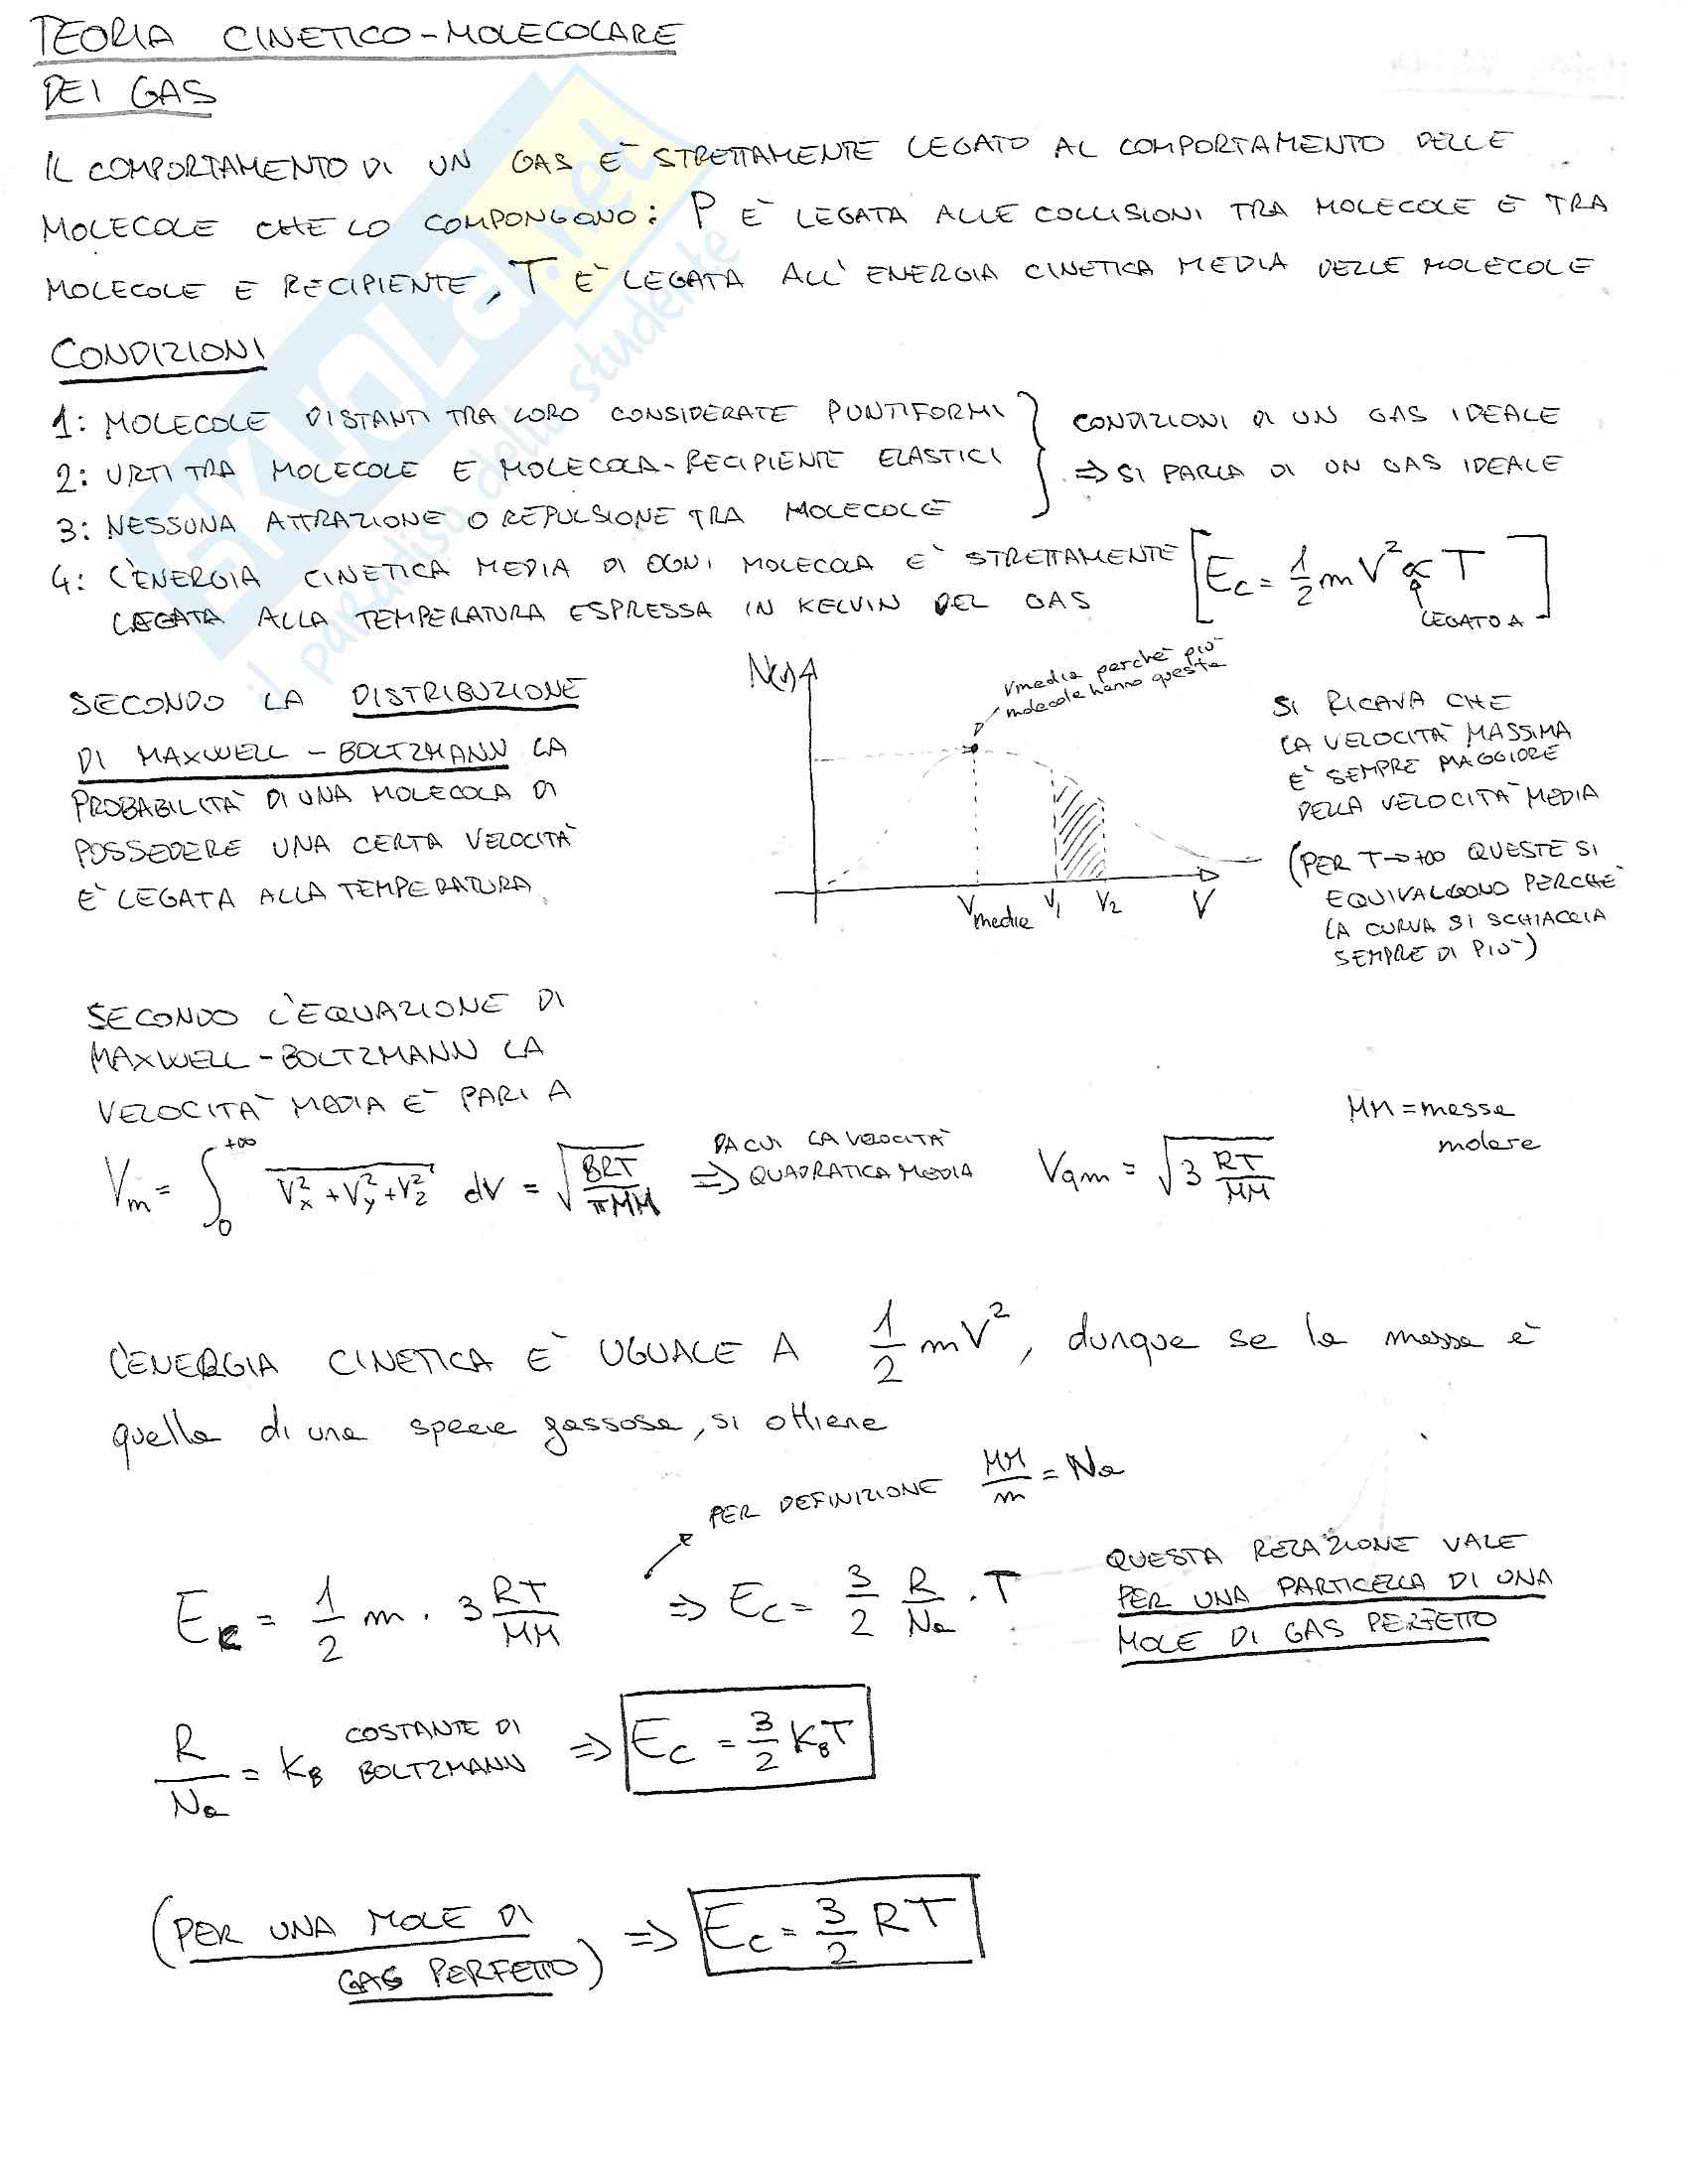 TEORIA CINETICO-MOLECOLARE
DEI GAS
IL COMPORTAMENTO DI UN GAS E' STRETTAMENTE LEGATO AL COMPORTAMENTO DELLE
MOLECOLE CHE LO COMPONGONO: P E' LEGATA ALLE COLLISIONI TRA MOLECOLE E TRA
MOLECOLE E RECIPIENTE, T E' LEGATA ALL' ENERGIA CINETICA MEDIA DELLE MOLECOLE
CONDIZIONI
1: MOLECOLE DISTANTI TRA LORO CONSIDERATE PUNTIFORMI
2: URTI TRA MOLECOLE E MOLECOLA-RECIPIENTE ELASTICI
3: NESSUNA ATTRAZIONE O REPULSIONE TRA MOLECOLE
} CONDIZIONI DI UN GAS IDEALE
⇒ SI PARLA DI UN GAS IDEALE
4: L'ENERGIA CINETICA MEDIA DI OGNI MOLECOLA E' STRETTAMENTE
LEGATA ALLA TEMPERATURA ESPRESSA IN KELVIN DEL GAS
[Ec = 1/2 m V² ∝ T]
LEGATO A
SECONDO LA DISTRIBUZIONE
DI MAXWELL - BOLTZMANN LA
PROBABILITA' DI UNA MOLECOLA DI
POSSEDERE UNA CERTA VELOCITA'
E' LEGATA ALLA TEMPERATURA
N(v)
Vmedia perchè più
molecole hanno questa
Vmedia V1 V2 V
SI RICAVA CHE
LA VELOCITA' MASSIMA
E' SEMPRE MAGGIORE
DELLA VELOCITA' MEDIA
(PER T→+∞ QUESTE SI
EQUIVALGONO PERCHE'
LA CURVA SI SCHIACCIA
SEMPRE DI PIU')
SECONDO L'EQUAZIONE DI
MAXWELL-BOLTZMANN LA
VELOCITA' MEDIA E' PARI A
MM = massa
molare
Vm = ∫₀^+∞ √(Vx² + Vy² + Vz²) dV = √(8RT/πMM) ⇒ DA CUI LA VELOCITA'
QUADRATICA MEDIA Vqm = √(3 RT/MM)
L'ENERGIA CINETICA E' UGUALE A 1/2 mV², dunque se la massa è
quella di una specie gassosa, si ottiene
PER DEFINIZIONE MM/m = Na
Ec = 1/2 m · 3 RT/MM ⇒ Ec = 3/2 R/Na · T
QUESTA RELAZIONE VALE
PER UNA PARTICELLA DI UNA
MOLE DI GAS PERFETTO
R/Na = KB COSTANTE DI
BOLTZMANN ⇒ Ec = 3/2 KBT
(PER UNA MOLE DI
GAS PERFETTO) ⇒ Ec = 3/2 RT
SKUOLA.net
il paradiso dello studente